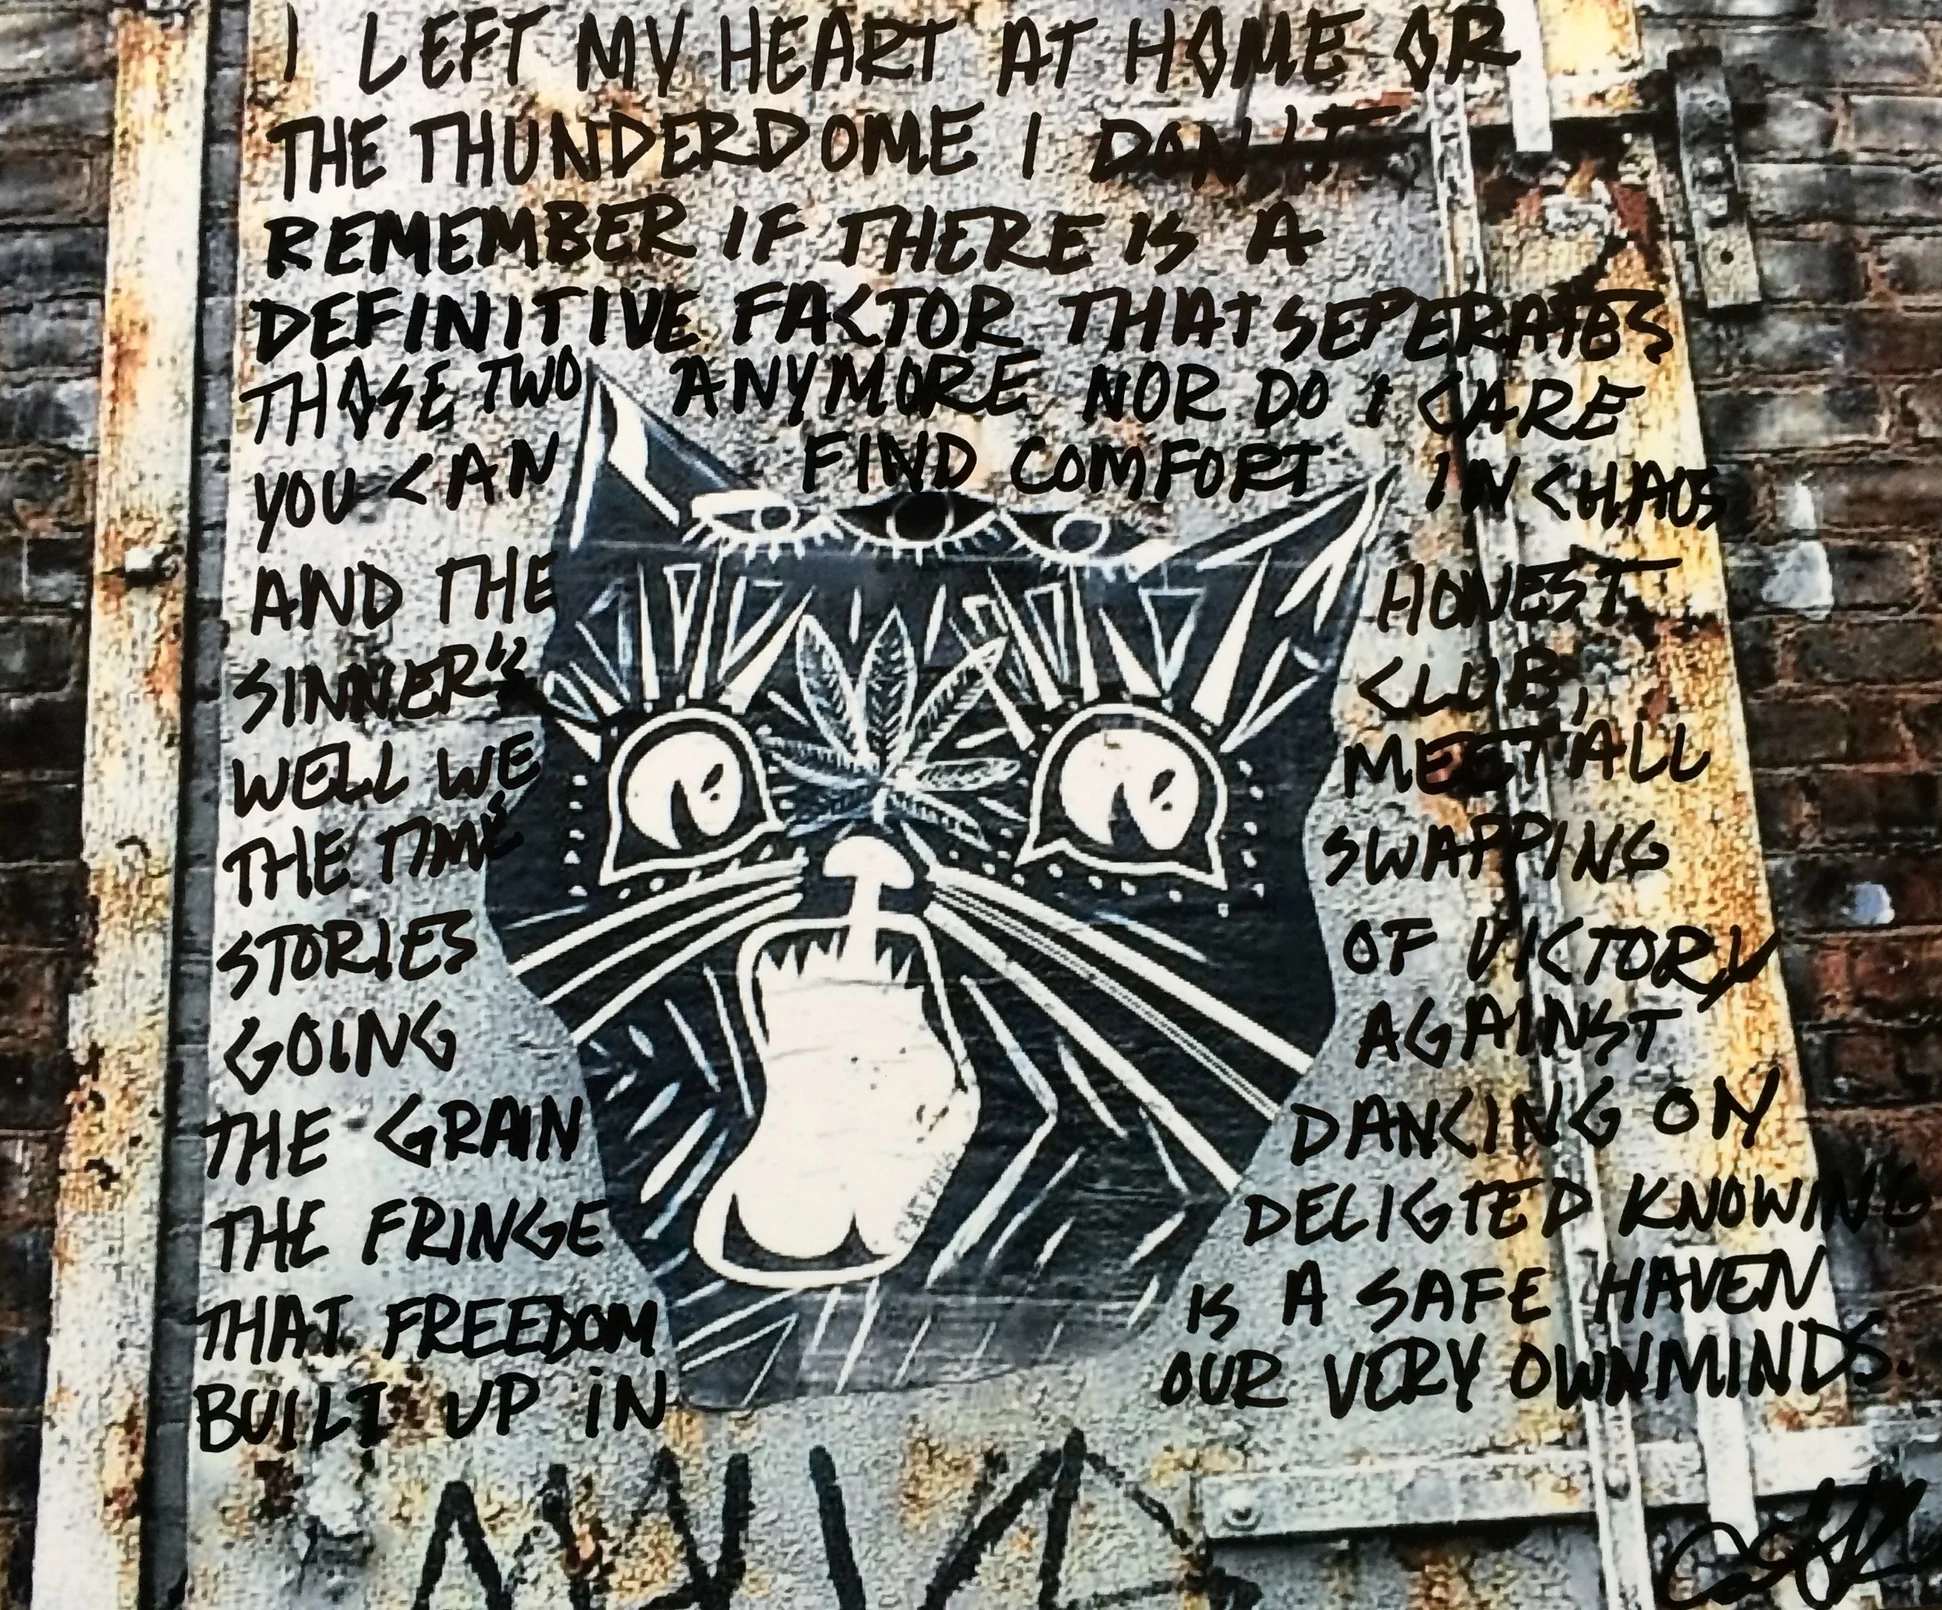 I LEFT MY HEART AT HOME OR
THE THUNDERDOME I DON'T
REMEMBER IF THERE IS A
DEFINITIVE FACTOR THAT SEPERATES
THOSE TWO ANYMORE NOR DO I CARE
YOU CAN FIND COMFORT IN CHAOS
AND THE HONEST
SINNER'S CLUB,
WELL WE MEET ALL
THE TIME SWAPPING
STORIES OF VICTORY
GOING AGAINST
THE GRAIN DANCING ON
THE FRINGE DELIGTED KNOWING
THAT FREEDOM IS A SAFE HAVEN
BUILT UP IN OUR VERY OWN MINDS.